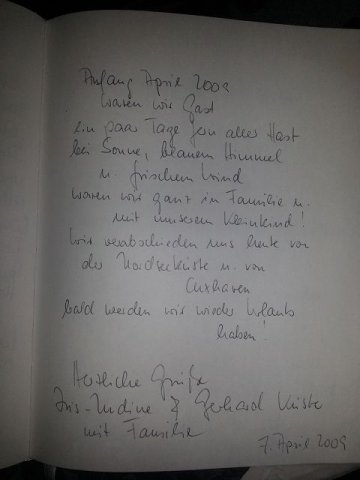 Anfang April 2009
waren wir Gast
ein paar Tage fern aller Hast
bei Sonne, blauem Himmel
u. frischem Wind
waren wir ganz in Familie u.
mit unserem Kleinkind!
Wir verabschieden uns heute von
der Nordseeküste u. von
Cuxhaven
bald werden wir wieder Urlaub
haben!
Herzliche Grüße
& Gerhard
mit Familie
7. April 2009